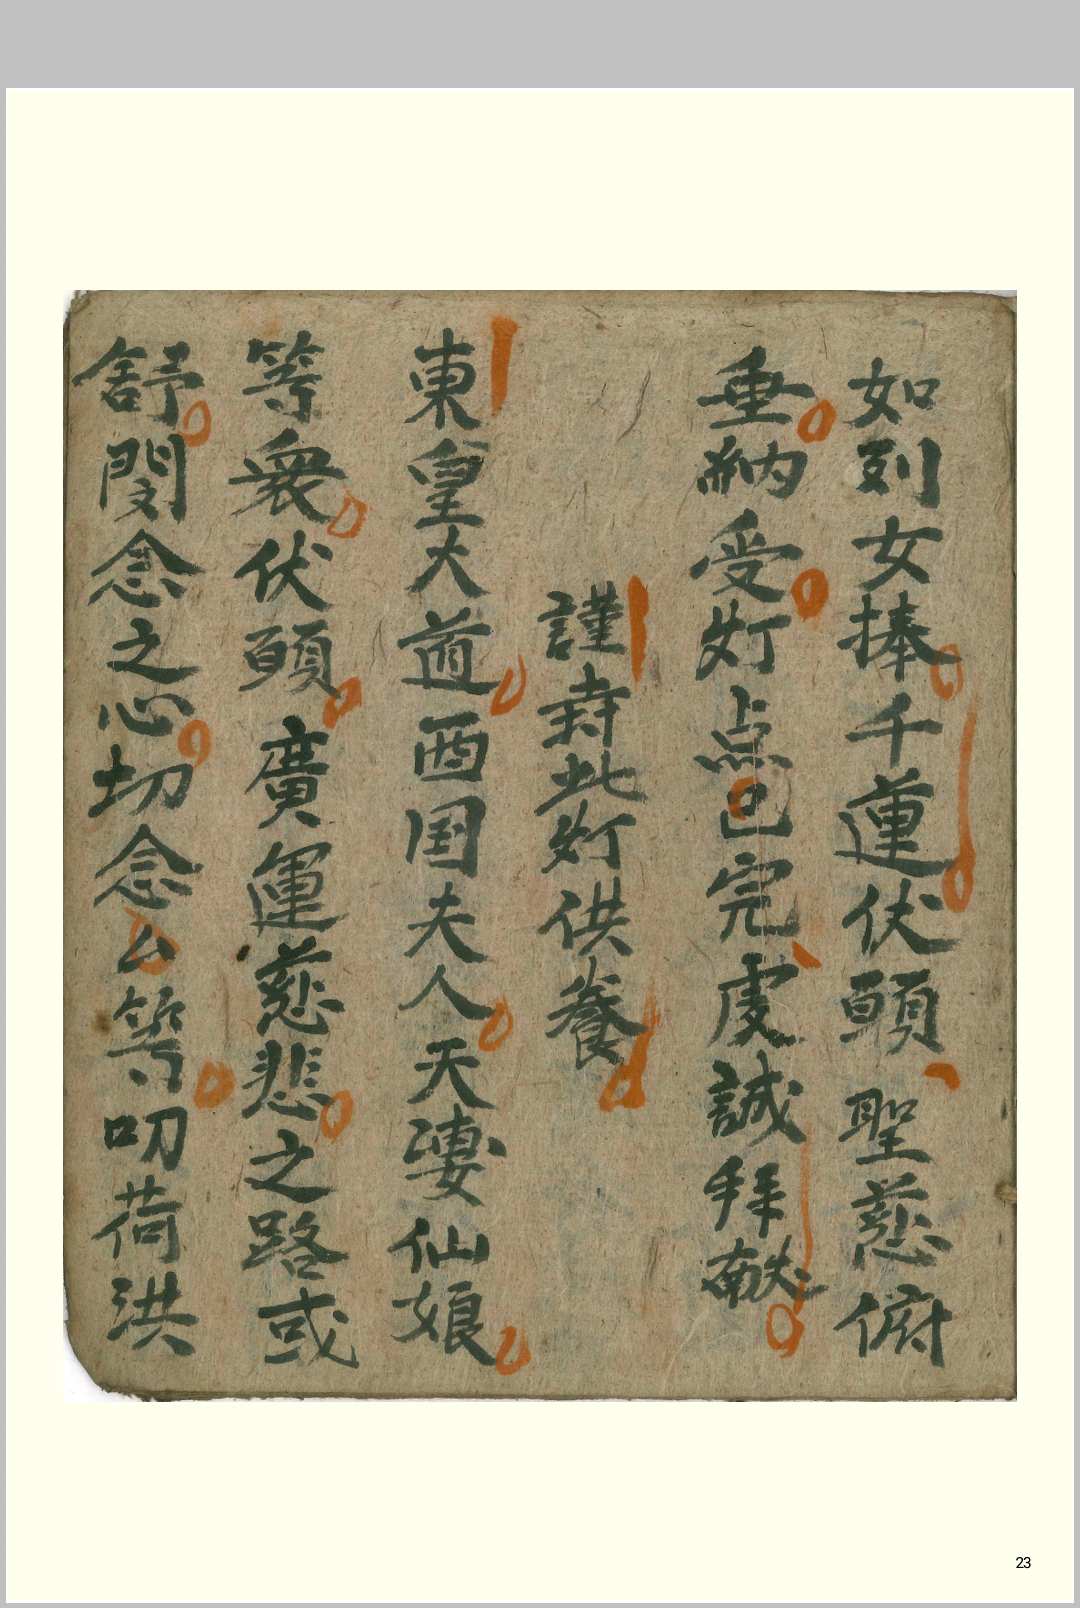 如列女捧千蓮伏願聖慈俯
垂納受灯点已完虔誠拜献
謹封此灯供養
東皇大道西国夫人天凄仙娘
等衆伏願廣運慈悲之路或
舒閔念之心切念厶等叨荷洪
23